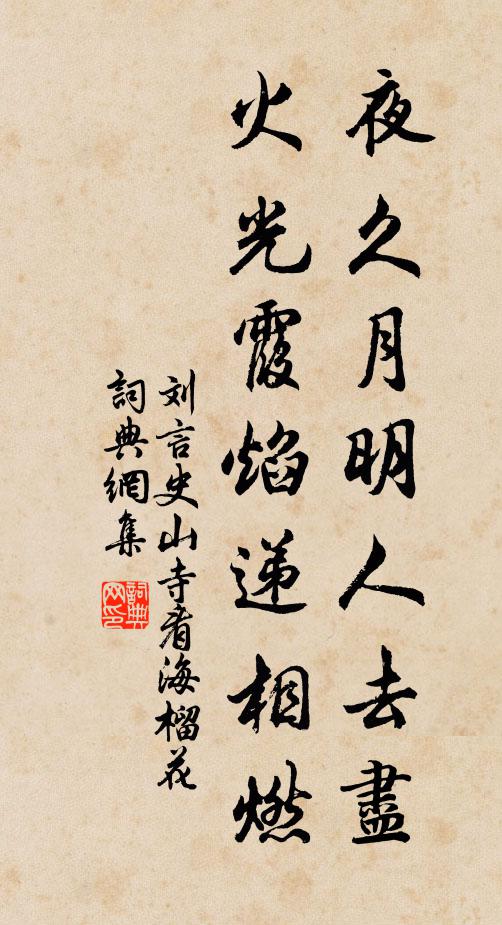 夜久月明人去盡
火光霞焰递相燃
刘言史山寺看海榴花
詞典網集
詞典
网印